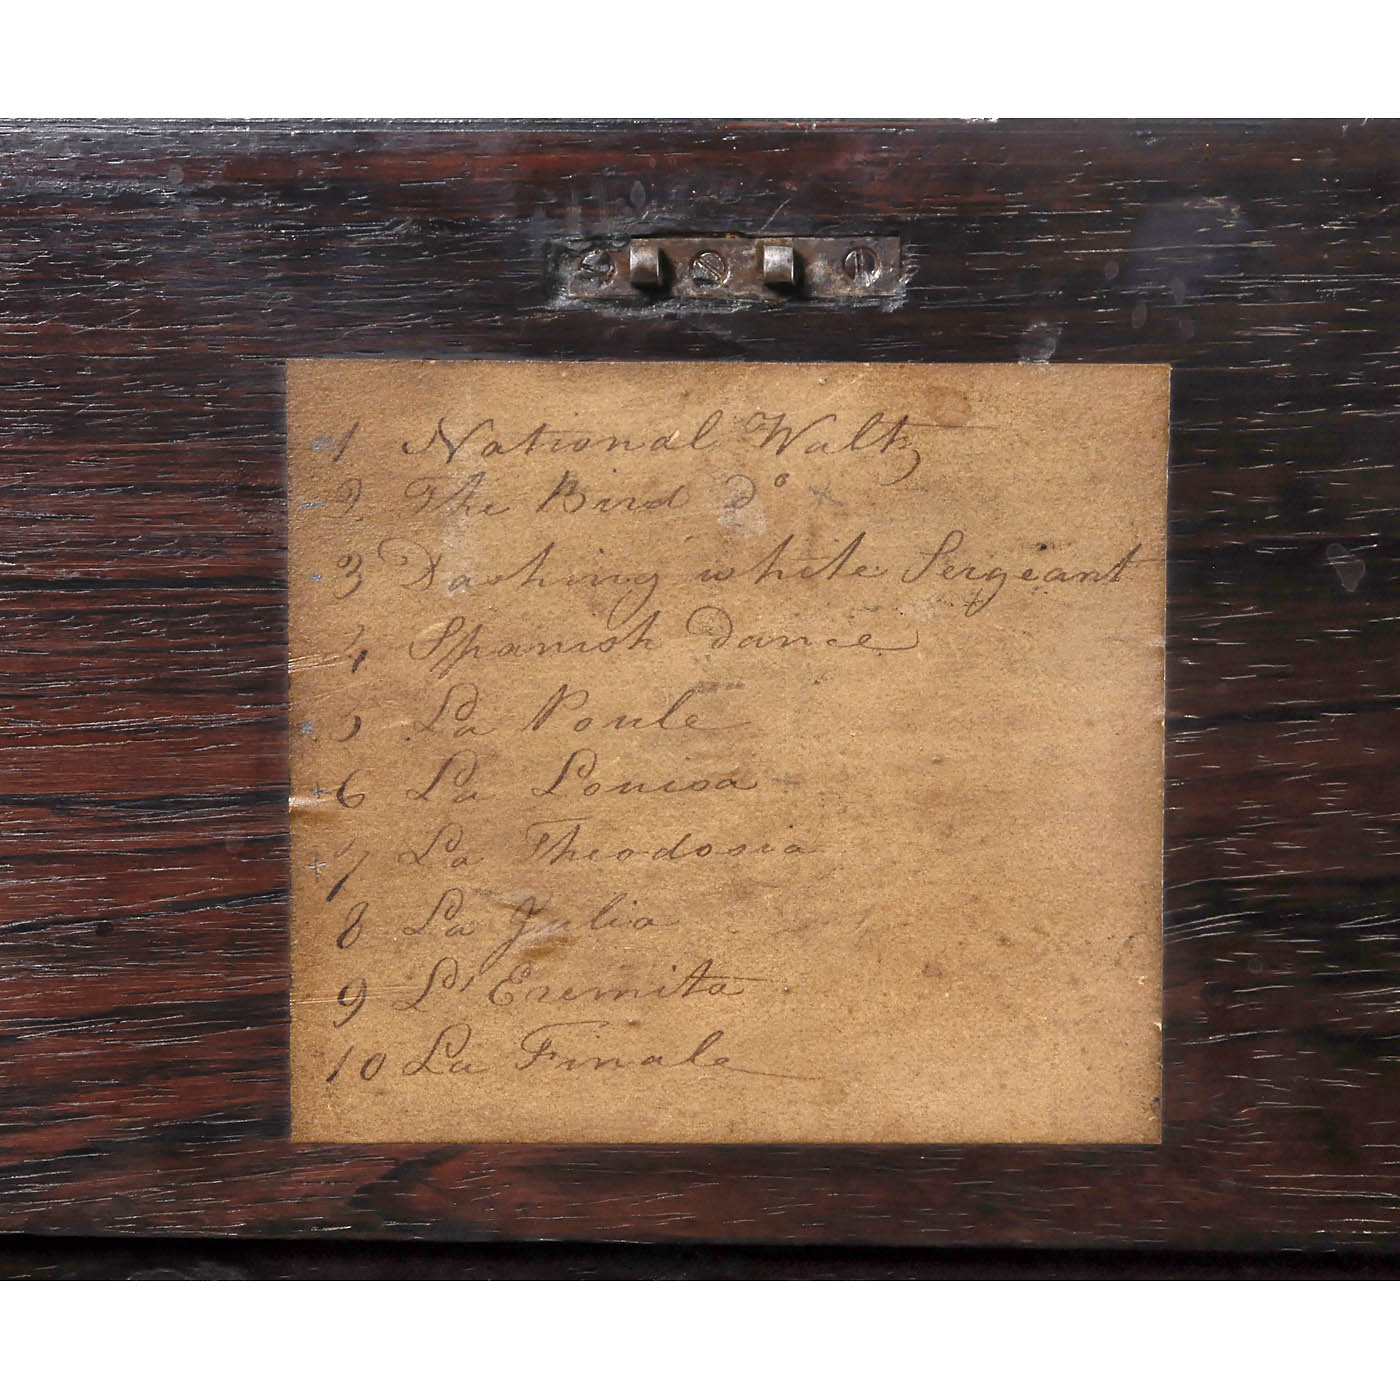 1 National Waltz
2 The Bird Do
3 Dashing white Sergeant
4 Spanish Dance
5 La Poule
6 La Louisa
7 La Theodosia
8 La Julia
9 L'Eremita
10 La Finale